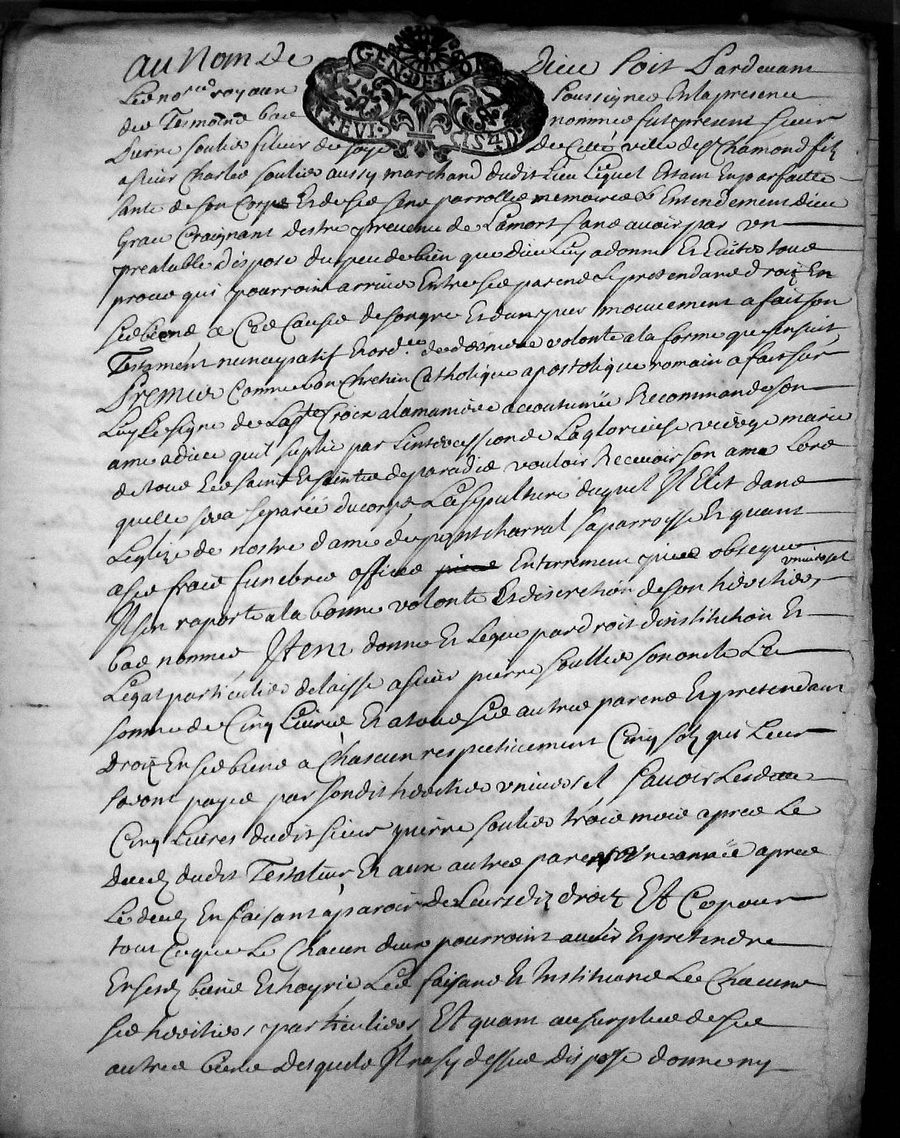 au Nom De Dieu Soit Pardevant
Les no.re royaux soussignes En la presence
des Tesmoins bas nommes fut present sieur
Pierre soulies fileur de soye de cette ville de St Chamond filz
a sieur Charles soulies aussy marchand dudit Lieu Lequel Estant En parfaitte
sante de son Corps Et de ses sens parrolles memoires & Entendement dieu
Grace Craignant destre prevenu de La mort sans avoir par un
prealable dispose du peu de bien que dieu Luy a donne Et Evites tous
proces qui pourroint arriver Entre ses parens & pretendans droitz En
ses biens a Ces Causes de son gre Et dun pur mouvement a fait son
Testament nuncupatif Et ord.ce de derniere volonte a la forme que sensuit
Premier Comme bon Chretien Catholique apostolique romain a fait sur
Luy Le signe de La ste Croix a la maniere accoutumée Recommande son
ame a dieu quil suplie par Lintercession de La glorieuse vierge marie
de tous Les saints Et saintes de paradis vouloir Recevoir son ame Lors
quelle sera separée du corps La sepulture duquel Il Elit dans
Leglize de nostre dame de pontcharral sa parroisse Et quant
a ses frais funebres offices Enterremens obseques
Il sen raporte a la bonne volonte Et discretion de son heritier universel
bas nommes Item donne Et Legue par droit d'institution Et
Legat particulier delaisse a sieur pierre soullies son oncle La
somme de Cinq Livres Et a tous ses autres parens Et pretendant
Droitz En ses biens a Chascun respectivement Cinq solz qui Leur
seront payes par sondit heritier universel savoir Lesdittes
Cinq Livres dudit sieur pierre soulies trois mois apres Le
Deces dudit Testateur Et aux autres parens Une année apres
Le deces En faisant aparoir de Leursditz droitz Et Ce pour
tout Ceque Le Chacun deux pourroint avoir Et pretendre
En sesdz biens Et hoyrie Les faisant Et Instituant Les Chacuns
ses heritiers particuliers Et quant au surplus de ses
autres biens desquels Il na sy dessus dispose donne ny